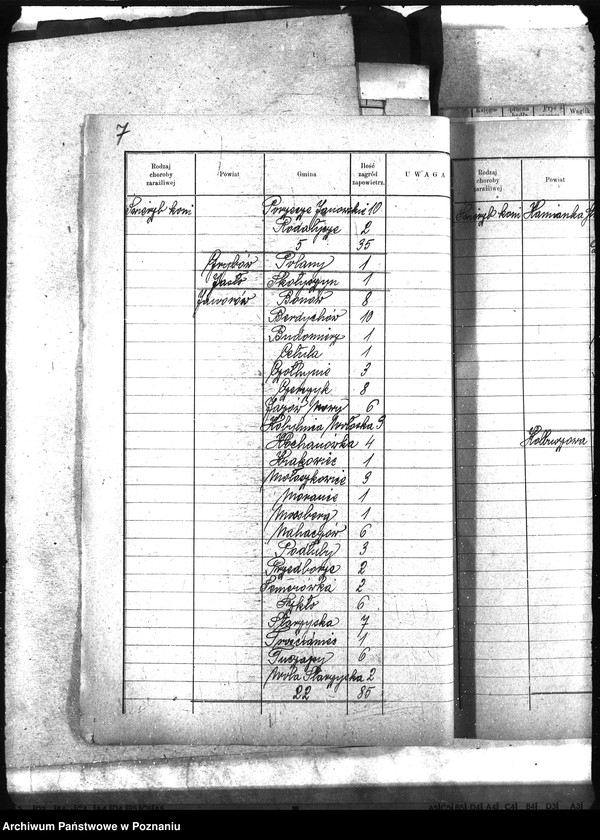 7
Rodzaj choroby zaraźliwej Powiat Gmina Ilość zagród zapowietrz. U W A G A
Świerzb koni Porzecze Janowskie 10
Rodatycze 2
5 35
Grybów Polany 1
Jasło Skołyszyn 1
Jaworów Bonów 8
Berdychów 10
Budomierz 1
Cetula 1
Czołhynie 3
Czerczyk 8
Jazów Nowy 6
Kobylnica Wołoska 3
Kochanówka 4
Krakowiec 1
Mołoszkowice 3
Moranie 1
Mosberg 1
Nahaczów 6
Podłuby 3
Przedborze 2
Semerówka 2
Szkło 6
Starzyska 7
Trościaniec 1
Tuczapy 6
Wola Starzyska 2
22 85
Waglik
Rodzaj choroby zaraźliwej Powiat
Świerzb koni Kamionka
Kolbuszowa
Archiwum Państwowe w Poznaniu